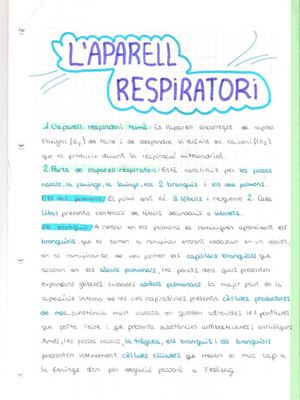 L'APARELL
RESPIRATORI
1. L'aparell respiratori humà: És l'aparell encarregat de captar
l'oxigen (O2) de l'aire i de desprendre el diòxid de carboni (CO2)
que es produeix durant la respiració mitocondrial.
2. Parts de l'aparell respiratori: Està constituït per les fosses
nasals, la faringe, la laringe, els 2 bronquis i els dos pulmons.
Els dos pulmons: El pulmó dret té 3 lòbuls i l'esquerre 2. Cada
lòbul presenta centenars de lòbuls secundaris o lobulets.
Els bronquis: A l'entrar en els pulmons es ramifiquen apareixent els
bronquíols, que es tornen a ramificar entrant cadascun en un lobulet,
on es ramifiquen de nou formen els capil·lars bronquials que
acaben en els sàculs pulmonars, les parets dels quals presenten
expansions globoses anomenades alvèols pulmonars. La major part de la
superfície interna de les vies respiratòries presenta cèl·lules productores
de moc, substància molt viscosa on queden adherides les partícules
que porta l'aire i que presenta substàncies antibacterianes i antivíriques.
A més, les fosses nasals, la tràquea, els bronquis i els bronquíols
presenten internament cèl·lules ciliades que mouen el moc cap a
la faringe d'on per deglució passarà a l'esòfag.